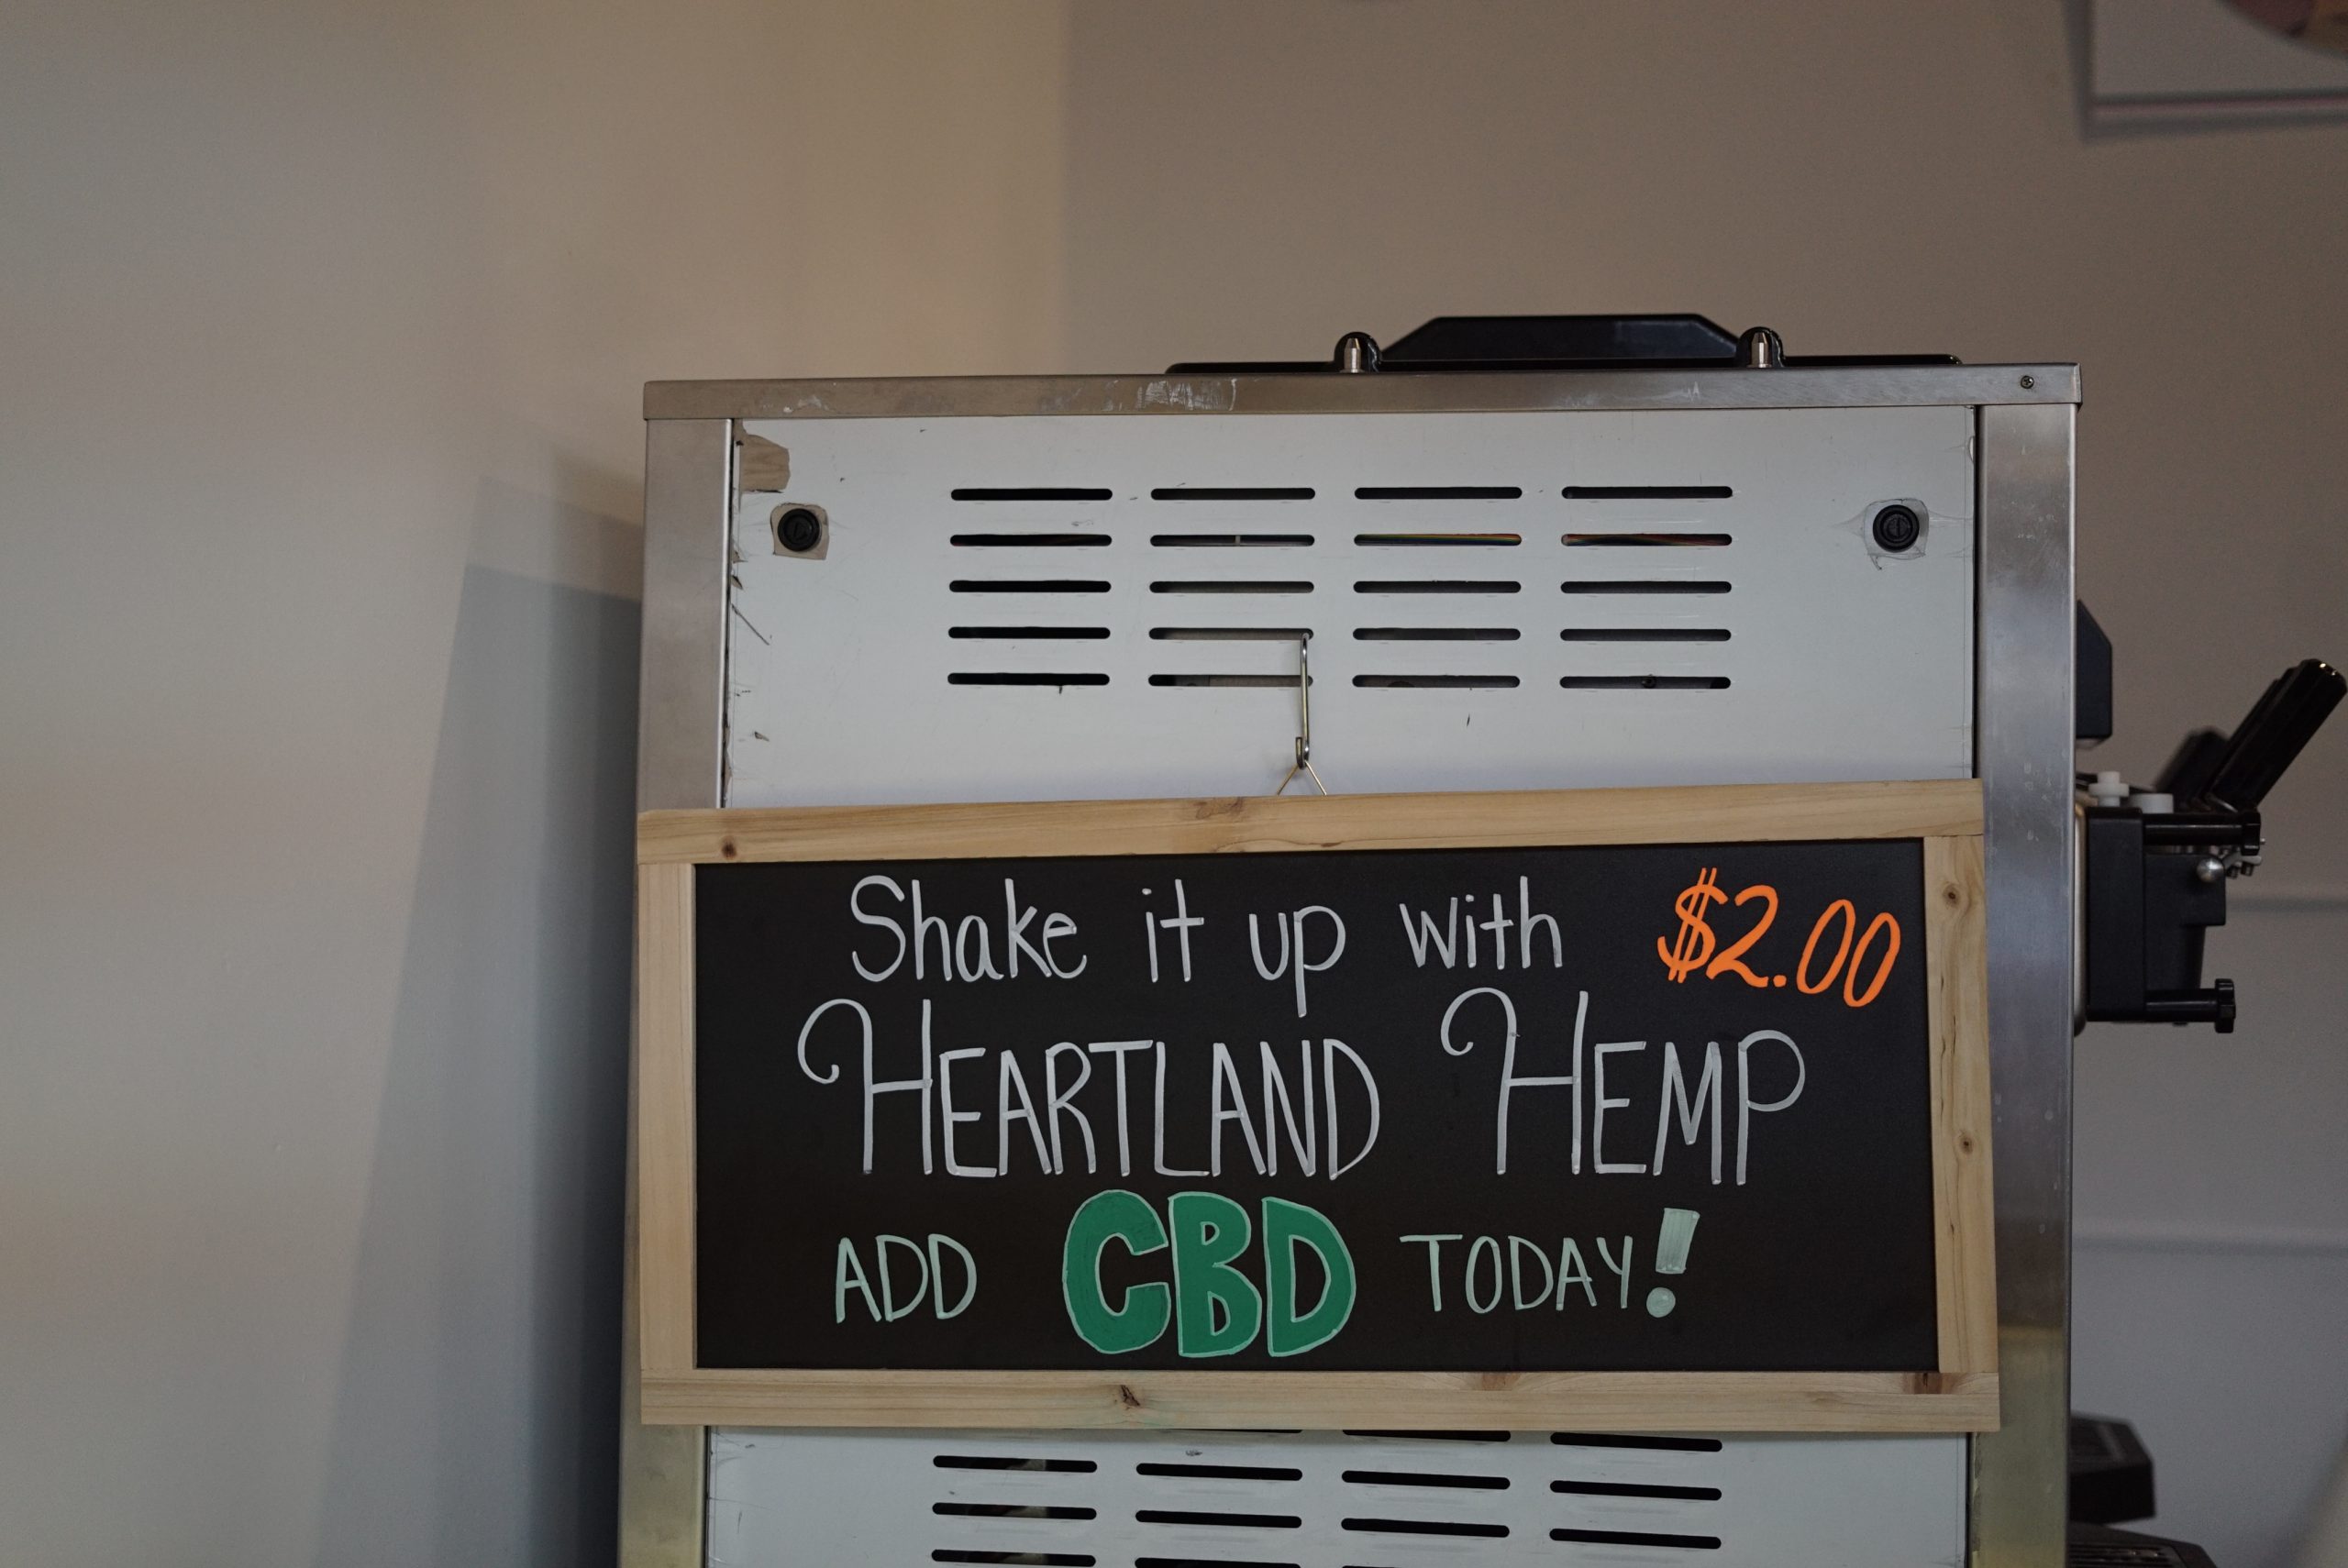 Shake it up with $2.00
HEARTLAND HEMP
ADD CBD TODAY!